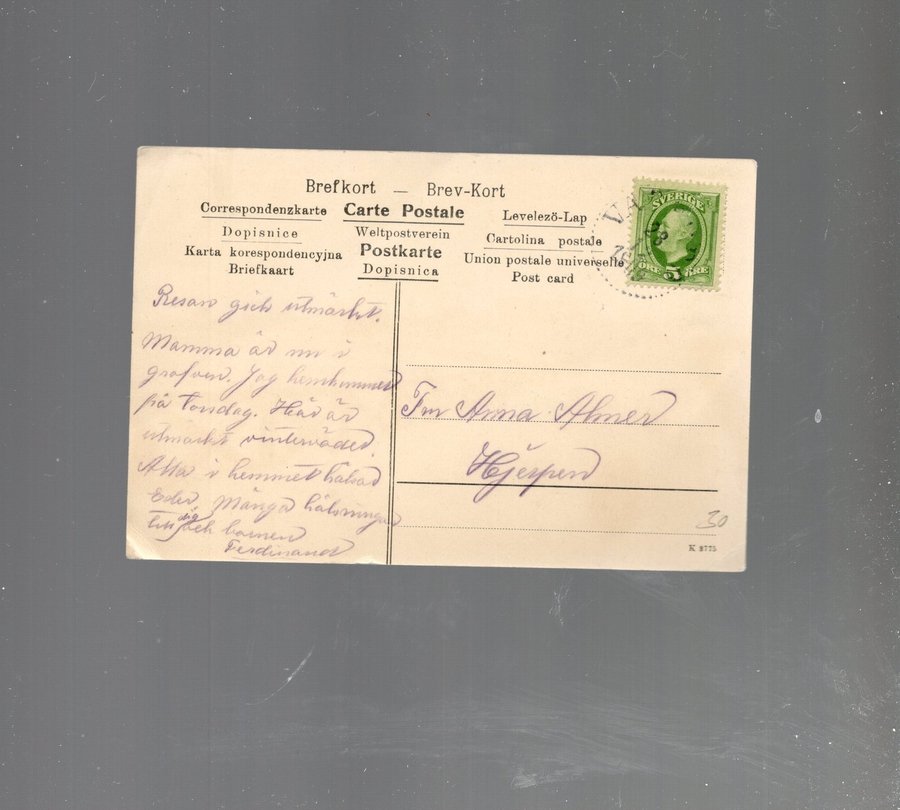 Brefkort — Brev-Kort
Correspondenzkarte Carte Postale Levelező-Lap
Dopisnice Weltpostverein Cartolina postale
Karta korespondencyjna Postkarte Union postale universelle
Briefkaart Dopisnica Post card
SVERIGE
ÖRE 5 ÖRE
Resan gick utmärkt.
Mamma är nu i
grafven. Jag hemkommer
på Torsdag. Här är
utmärkt vinterväder.
Alla i hemmet hälsar
Eder. Många hälsningar
till dig och barnen
Ferdinand
Fru Anna Almer
Hjerpen
30
K 8775